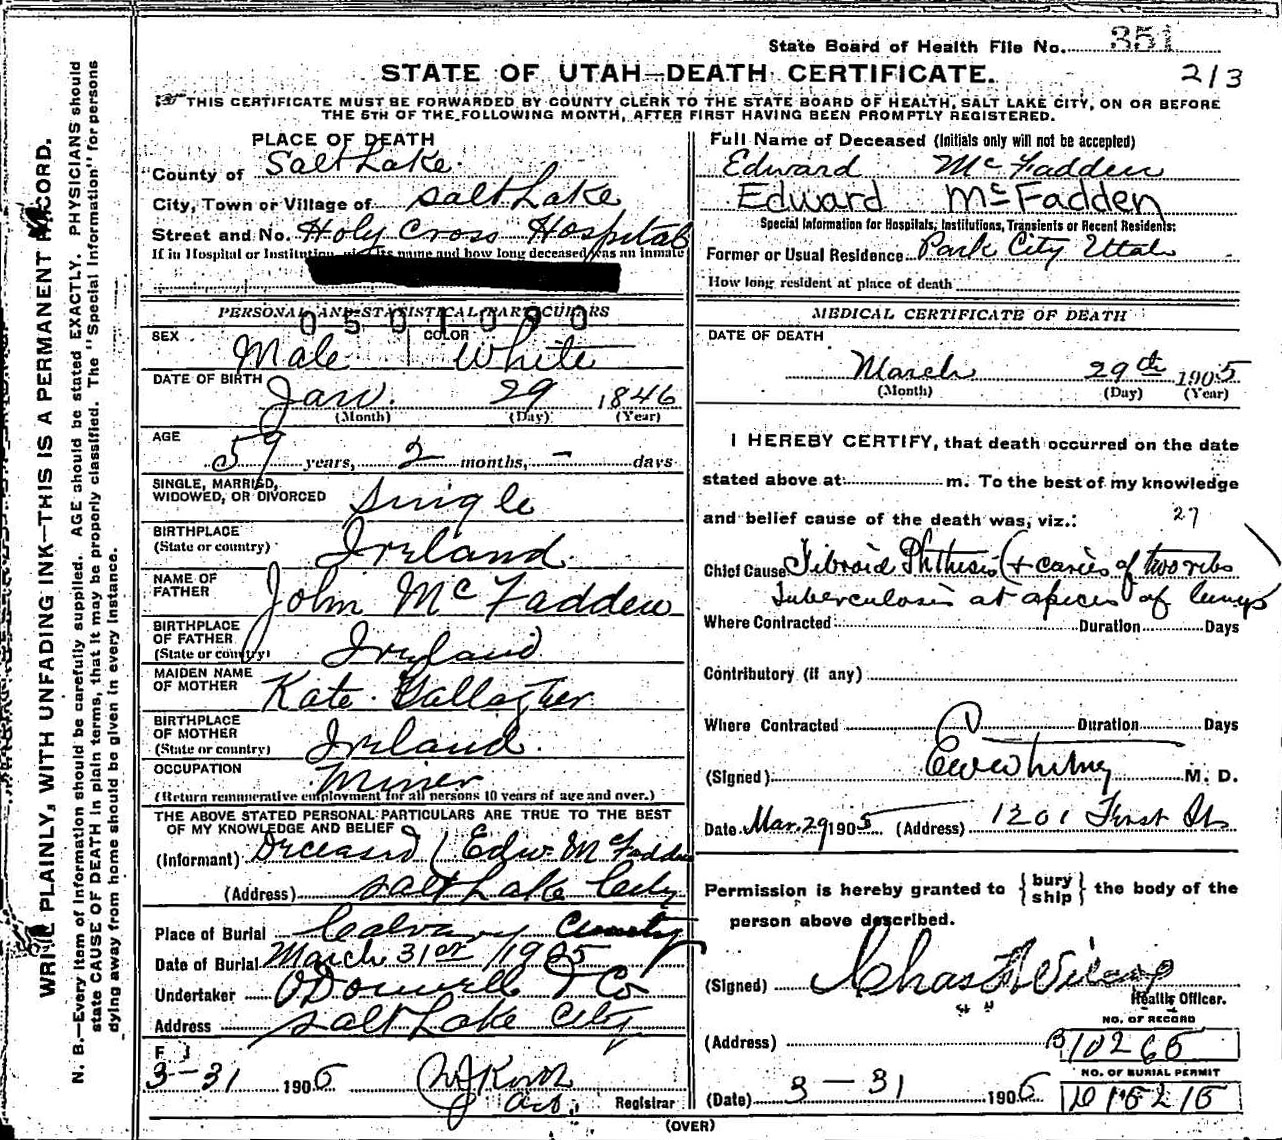 State Board of Health File No. 351
STATE OF UTAH—DEATH CERTIFICATE.
213
THIS CERTIFICATE MUST BE FORWARDED BY COUNTY CLERK TO THE STATE BOARD OF HEALTH, SALT LAKE CITY, ON OR BEFORE
THE 5TH OF THE FOLLOWING MONTH, AFTER FIRST HAVING BEEN PROMPTLY REGISTERED.
WRITE PLAINLY, WITH UNFADING INK—THIS IS A PERMANENT RECORD.
N. B.—Every item of information should be carefully supplied. AGE should be stated EXACTLY. PHYSICIANS should
state CAUSE OF DEATH in plain terms, that it may be properly classified. The "Special Information" for persons
dying away from home should be given in every instance.
PLACE OF DEATH
County of Salt Lake
City, Town or Village of Salt Lake
Street and No. Holy Cross Hospital
If in Hospital or Institution, its name and how long deceased was an inmate
PERSONAL AND STATISTICAL PARTICULARS
0501090
SEX Male COLOR White
DATE OF BIRTH Jan. 29 1846
(Month) (Day) (Year)
AGE
59 years, 2 months, - days
SINGLE, MARRIED,
WIDOWED, OR DIVORCED Single
BIRTHPLACE
(State or country) Ireland
NAME OF
FATHER John McFadden
BIRTHPLACE
OF FATHER
(State or country) Ireland
MAIDEN NAME
OF MOTHER Kate Gallagher
BIRTHPLACE
OF MOTHER
(State or country) Ireland.
OCCUPATION Miner
(Return remunerative employment for all persons 10 years of age and over.)
THE ABOVE STATED PERSONAL PARTICULARS ARE TRUE TO THE BEST
OF MY KNOWLEDGE AND BELIEF
(Informant) Deceased (Edw. McFadden
(Address) Salt Lake City
Place of Burial Calvary
Date of Burial March 31st 1905
Undertaker O'Donnell & Co
Address Salt Lake City
3-31 1905
Registrar
Full Name of Deceased (Initials only will not be accepted)
Edward McFadden
Edward McFadden
Special Information for Hospitals, Institutions, Transients or Recent Residents:
Former or Usual Residence Park City Utah
How long resident at place of death
MEDICAL CERTIFICATE OF DEATH
DATE OF DEATH
March 29th 1905
(Month) (Day) (Year)
I HEREBY CERTIFY, that death occurred on the date
stated above at m. To the best of my knowledge
and belief cause of the death was, viz.: 27
Chief Cause Fibroid Phthisis (+ caries of two ribs
Tuberculosis at apices of lungs)
Where Contracted Duration Days
Contributory (if any)
Where Contracted Duration Days
(Signed) Whitney M. D.
Date Mar. 29 1905 (Address) 1201 First St
Permission is hereby granted to {bury
ship} the body of the
person above described.
(Signed) Chas
Health Officer.
NO. OF RECORD
(Address) B10265
NO. OF BURIAL PERMIT
(Date) 3-31 1905 D15215
(OVER)